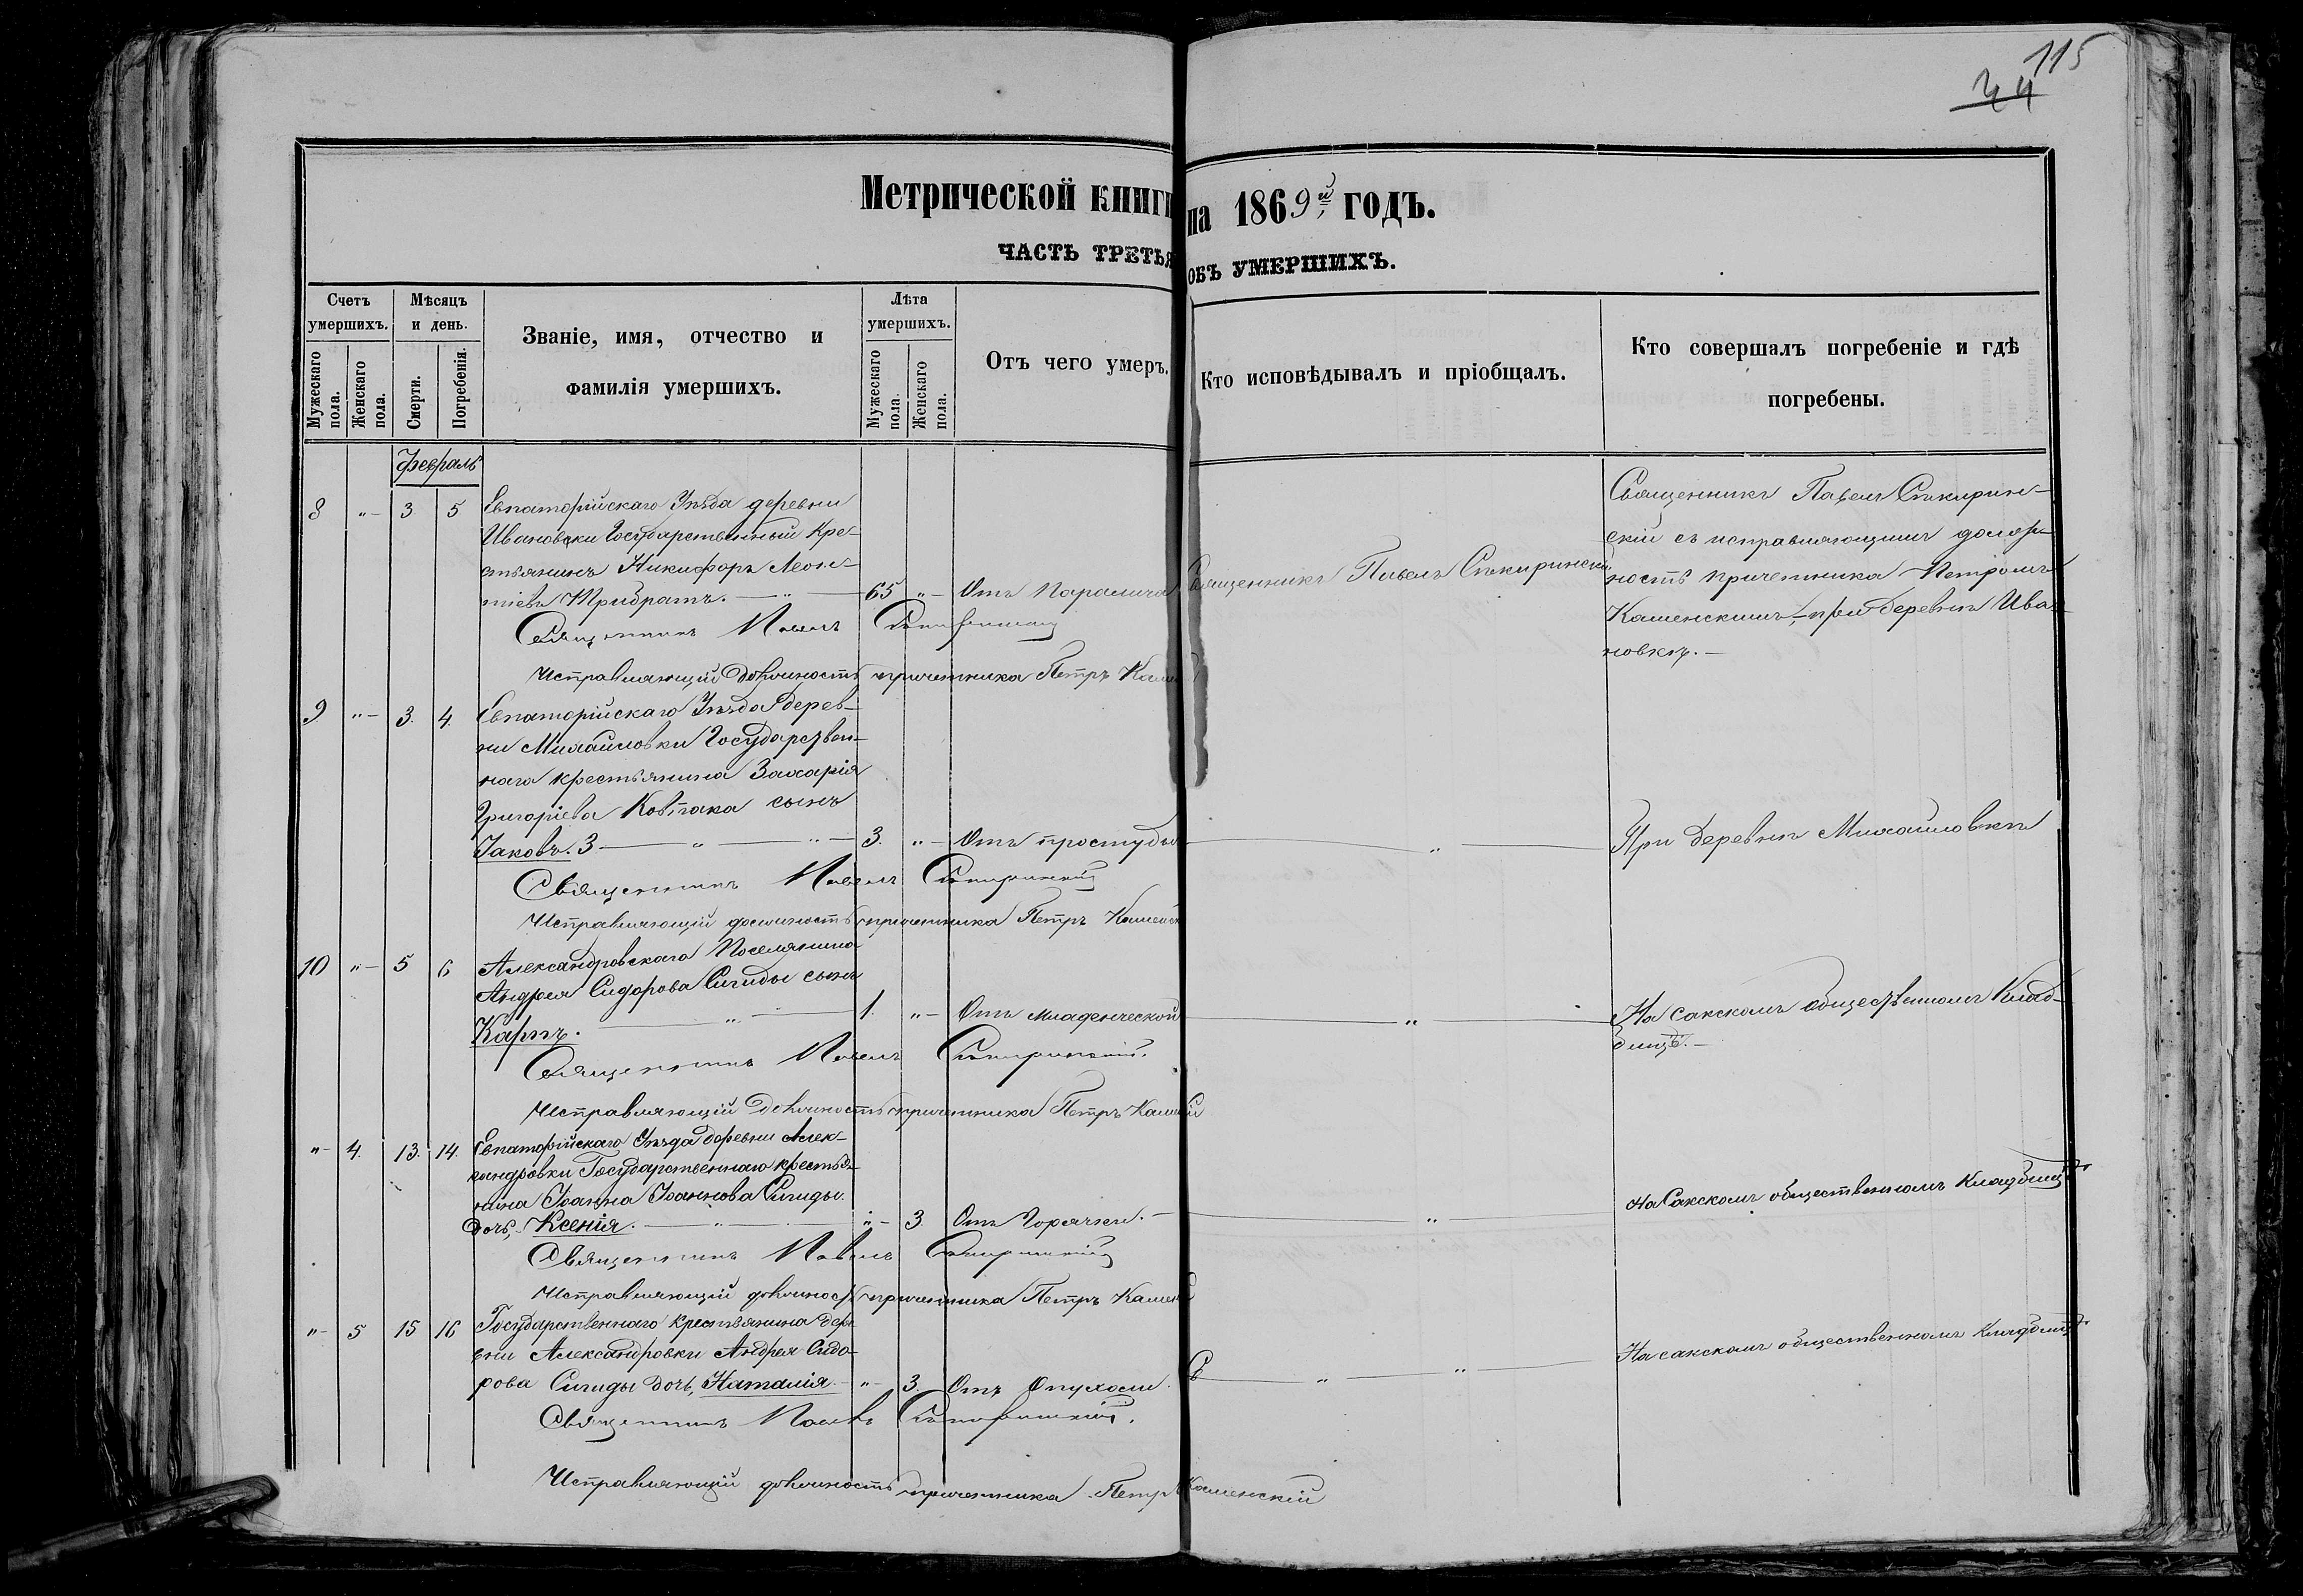 115
34
Метрической книги на 1869й годъ.
ЧАСТЬ ТРЕТЬЯ ОБЪ УМЕРШИХЪ.
Счетъ умершихъ.
Мужескаго пола.
Женскаго пола.
Мѣсяцъ и день.
Смерти.
Погребенія.
Званіе, имя, отчество и
фамилія умершихъ.
Лѣта умершихъ.
Мужескаго пола.
Женскаго пола.
Отъ чего умеръ.
Кто исповѣдывалъ и пріобщалъ.
Кто совершалъ погребеніе и гдѣ
погребены.
Февраль
8 "- 3 5 Евпаторійскаго Уѣзда деревни
Ивановки Государственный Кре-
стьянинъ Никифоръ Леон-
тіевъ Трибратъ. — 65 "- Отъ Паралича
Священникъ Павелъ
Священникъ Павелъ
скій съ исправляющимъ долж-
ность причетника Петромъ
Каменскимъ,- при деревнѣ Ива-
новкѣ.-
Священникъ Павелъ
Исправляющій должность причетника Петръ Камен
9 "- 3. 4. Евпаторійскаго Уѣзда дерев-
ни Михайловки Государствен-
наго крестьянина Захарія
Григоріева Ковтака сынъ
Іаковъ. 3 — " — 3. "- Отъ простуды — " — При деревнѣ Михайловкѣ
Священникъ Павелъ
Исправляющій должность причетника Петръ Каменс
10 "- 5 6 Александровскаго Поселянина
Андрея Сидорова Сигиды сынъ
Карпъ. — " — 1. "- Отъ младенческой — " — На сакскомъ общественномъ Клад-
бищѣ.-
Священникъ Павелъ
Исправляющій должность причетника Петръ Камен
"- 4. 13. 14. Евпаторійскаго Уѣзда деревни Алек-
сандровки Государственнаго крестья-
нина Іоанна Іоаннова Сигиды
дочь, Ксенія. — " — "- 3. Отъ Горячки. — " — На Сакскомъ общественномъ Кладбищѣ
Священникъ Павелъ
Исправляющій должность причетника Петръ Камен
"- 5 15 16 Государственнаго крестьянина дер
вни Александровки Андрея Сидо-
рова Сигиды дочь, Наталія. - "- 3. Отъ Опухоли. " — " — На сакскомъ общественномъ Кладбищѣ
Священникъ Павелъ
Исправляющій должность причетника Петръ Каменскій